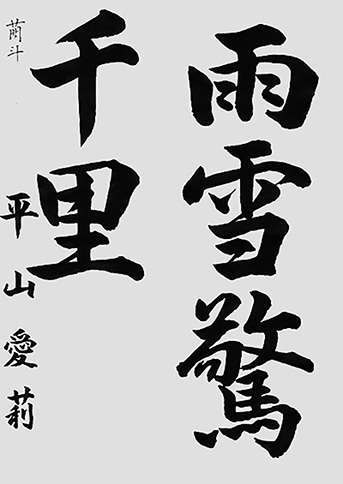 雨雪驚
千里
萠斗
平山愛莉